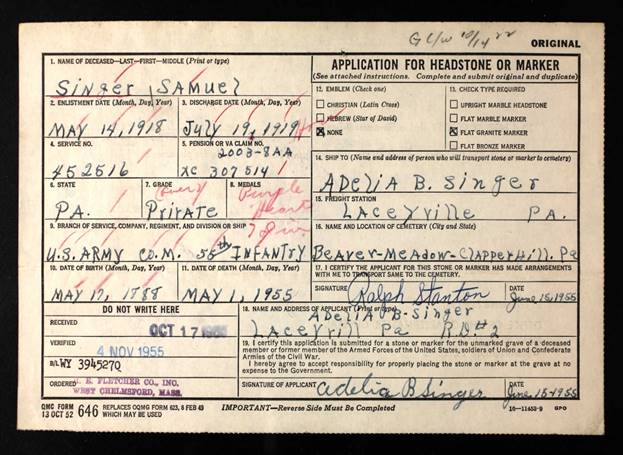 GC/W 10/14 22
ORIGINAL
1. NAME OF DECEASED—LAST—FIRST—MIDDLE (Print or type)
Singer, SAMUEL
2. ENLISTMENT DATE (Month, Day, Year)
MAY 14, 1918
3. DISCHARGE DATE (Month, Day, Year)
July 19, 1919
4. SERVICE NO.
452516
5. PENSION OR VA CLAIM NO.
2003-8AA
XC 307514
6. STATE
PA.
7. GRADE
Private
8. MEDALS
Purple
Heart
9. BRANCH OF SERVICE, COMPANY, REGIMENT, AND DIVISION OR SHIP
U.S. ARMY CO. M. 55th INFANTRY
10. DATE OF BIRTH (Month, Day, Year)
MAY 17, 1888
11. DATE OF DEATH (Month, Day, Year)
MAY 1, 1955
DO NOT WRITE HERE
RECEIVED
OCT 17 1955
VERIFIED
4 NOV 1955
B/L WY 3945270
ORDERED
E. FLETCHER CO., INC.
WEST CHELMSFORD, MASS.
APPLICATION FOR HEADSTONE OR MARKER
(See attached instructions. Complete and submit original and duplicate)
12. EMBLEM (Check one)
CHRISTIAN (Latin Cross)
HEBREW (Star of David)
NONE
13. CHECK TYPE REQUIRED
UPRIGHT MARBLE HEADSTONE
FLAT MARBLE MARKER
FLAT GRANITE MARKER
FLAT BRONZE MARKER
14. SHIP TO (Name and address of person who will transport stone or marker to cemetery)
ADelIA B. Singer
15. FREIGHT STATION
LACeyville PA.
16. NAME AND LOCATION OF CEMETERY (City and State)
Beaver-Meadow-ClapperHill. Pa
17. I CERTIFY THE APPLICANT FOR THIS STONE OR MARKER HAS MADE ARRANGEMENTS WITH ME TO TRANSPORT SAME TO THE CEMETERY.
SIGNATURE
Ralph Stanton
DATE
June, 15, 1955
18. NAME AND ADDRESS OF APPLICANT (Print or type)
ADelIA B. Singer
LACeyvill Pa R.D.#2
19. THIS CERTIFICATION is submitted for a stone or marker for the unmarked grave of a deceased
member or former member of the Armed Forces of the United States, soldiers of Union and Confederate
Armies of the Civil War.
I hereby agree to accept responsibility for properly placing the stone or marker at the grave at no
expense to the Government.
SIGNATURE OF APPLICANT
Adelia B Singer
DATE
June, 15-1955
QMC FORM
13 OCT 52 646 REPLACES OQMG FORM 623, 8 FEB 49
WHICH MAY BE USED
IMPORTANT—Reverse Side Must be Completed
16—11453-9 GPO